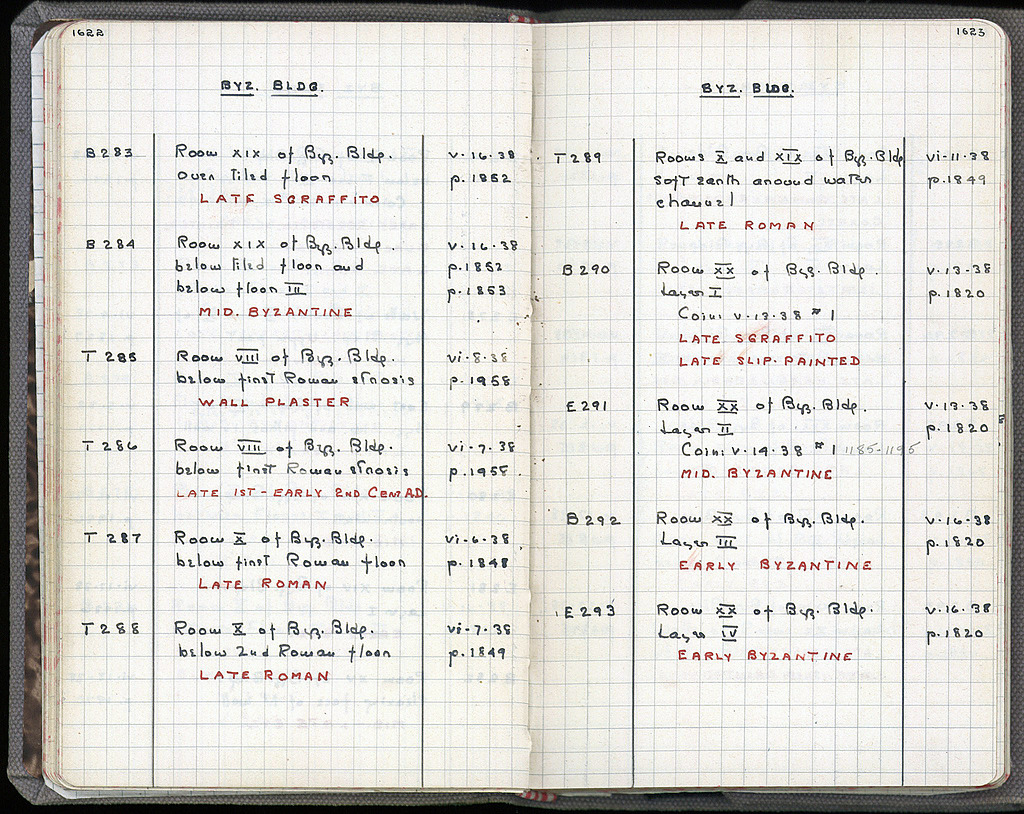 1622
BYZ. BLDG.
B 283 Room XIX of Byz. Bldg. V-16-38
over tiled floor p. 1852
LATE SGRAFFITO
B 284 Room XIX of Byz. Bldg. V-16-38
below tiled floor and p. 1852
below floor III p. 1853
MID. BYZANTINE
T 285 Room VIII of Byz. Bldg. VI-8-38
below first Roman strosis p. 1958
WALL PLASTER
T 286 Room VIII of Byz. Bldg. VI-7-38
below first Roman strosis p. 1958
LATE 1ST - EARLY 2ND CENT A.D.
T 287 Room X of Byz. Bldg. VI-6-38
below first Roman floor p. 1848
LATE ROMAN
T 288 Room X of Byz. Bldg. VI-7-38
below 2nd Roman floor p. 1849
LATE ROMAN
1623
BYZ. BLDG.
T 289 Rooms X and XIX of Byz. Bldg VI-11-38
soft earth around water p. 1849
channel
LATE ROMAN
B 290 Room XX of Byz. Bldg. V-13-38
Layer I p. 1820
Coin: V-13-38 # 1
LATE SGRAFFITO
LATE SLIP-PAINTED
E 291 Room XX of Byz. Bldg. V-13-38
Layer II p. 1820
Coin: V-14-38 # 1 1185-1195
MID. BYZANTINE
B 292 Room XX of Byz. Bldg. V-16-38
Layer III p. 1820
EARLY BYZANTINE
E 293 Room XX of Byz. Bldg. V-16-38
Layer IV p. 1820
EARLY BYZANTINE